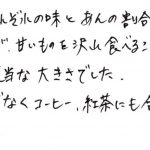 んぞれの味とあんの割合
が、甘いものを沢山食べるこ
当な大きさでした.
でなくコーヒー、紅茶にも合